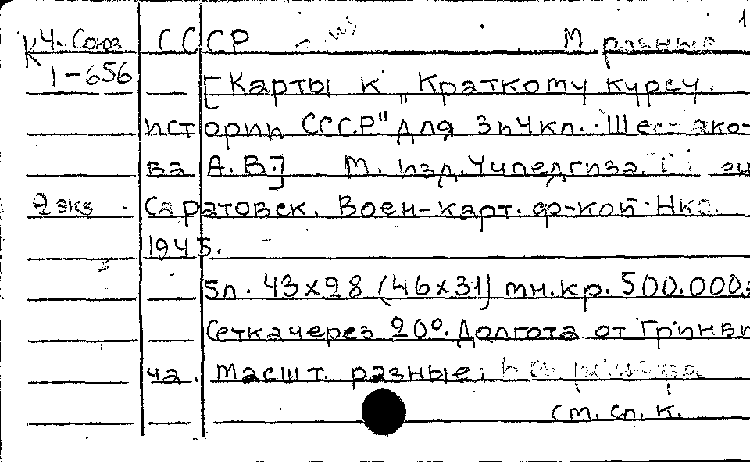 К Ч-Союз СССР М разные 1
1-656 [Карты к „Краткому курсу
истории СССР" для 3 и 4 кл. Шестако-
ва А.В.] М. изд. Учпедгиза.
2 экз. Саратовск. Воен-карт. ф-кой Нко.
1945.
5л. 43х28 (46х31) мн.кр. 500.000
Сетка через 20°. Долгота от Гринви
ча. Масшт. разные:
см. сл. к.